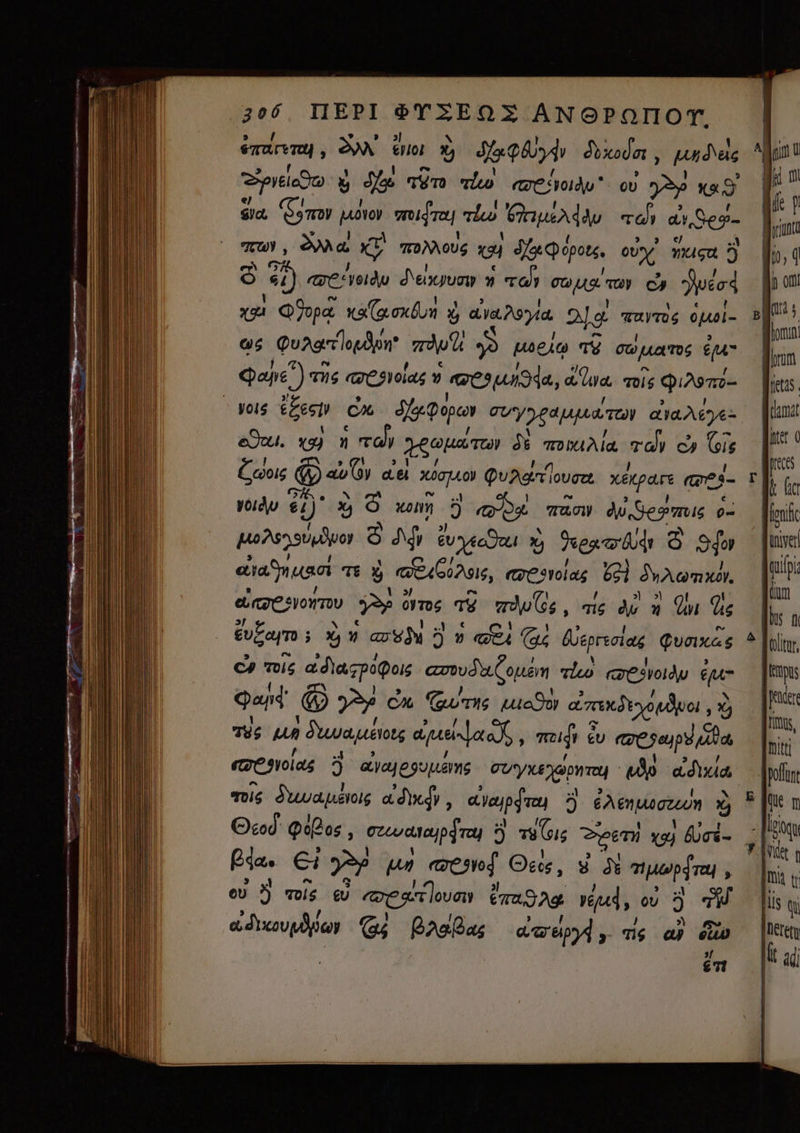 306 ΠΕΡΙ ΦΥΣΕΩΣ ΑΝΘΡΩΠΟΥ.
ἐπάγεται, ἀλλ' ἔνιοι καὶ διαφεύγειν δοκοῦσι, μηδεὶς
ἀρνείσθω καὶ διὰ τοῦτο τὴν πρόνοιαν· οὐ γὰρ καθ'
ἕνα τρόπον μόνον ποιεῖται τὴν ἐπιμέλειαν τῶν ἀνθρώ-
πων, ἀλλὰ κατὰ πολλοὺς καὶ διαφόρους. οὐχ' ἥκιστα δὲ
τὸ εἶναι πρόνοιαν δείκνυσιν ἡ τῶν σωμάτων ἐν γενέσει
καὶ φθορᾷ κατασκευὴ καὶ ἀναλογία διὰ παντὸς ὁμοί-
ως φυλαττομένη· παντὶ γὰρ μορίῳ τοῦ σώματος ἐμ-
φαίνεται τῆς προνοίας ἡ προμήθεια, ἅτινα τοῖς φιλοπό-
νοις ἔξεστιν ἐκ διαφόρων συγγραμμάτων ἀναλέγε-
σθαι. καὶ ἡ τῶν χρωμάτων δὲ ποικιλία τῶν ἐν τοῖς
ζώοις τὸ αὐτῶν ἀεὶ κόσμιον φυλάττουσα κέκραγε πρό-
νοιαν εἶναι· καὶ τὸ κοινῇ δὲ παρὰ πᾶσιν ἀνθρώποις ὁ-
μολογούμενον τὸ δεῖν εὔχεσθαι καὶ θεραπεύειν τὸ θεῖον
ἀναθήμασί τε καὶ περιβόλοις, προνοίας ἐστὶ δηλωτικόν.
ἀπρονοήτου γὰρ ὄντος τοῦ παντὸς, τίς ἂν ἢ τίνι τις
εὔξαιτο; καὶ ἡ σπουδὴ δὲ ἡ περὶ τὰς εὐεργεσίας φυσικῶς
ἐν τοῖς ἀδιαστρόφοις σπουδαζομένη τὴν πρόνοιαν ἐμ-
φαίνει· τὸν γὰρ ἐκ ταύτης μισθὸν ἀπεκδεχόμενοι, καὶ
τοὺς μὴ δυναμένους ἀμείψασθαι, ποιεῖν εὖ προαιρούμεθα
προνοίας δὲ ἀναιρουμένης συγκεχώρηται μὲν ἀδικία
τοῖς δυναμένοις ἀδικεῖν, ἀναιρεῖται δὲ ἐλεημοσύνη καὶ
Θεοῦ φόβος, συναναιρεῖται δὲ τούτοις ἀρετὴ καὶ εὐσέ-
βεια. Εἰ γὰρ μὴ προνοεῖ Θεὸς, οὐ δὲ τιμωρεῖται,
οὐ δὲ τοῖς εὖ πράττουσιν ἔπαθλα νέμει, οὐ δὲ τῶν
ἀδικουμένων τὰς βλάβας ἀπείργει, τίς ἂν οὖν
ἔτι